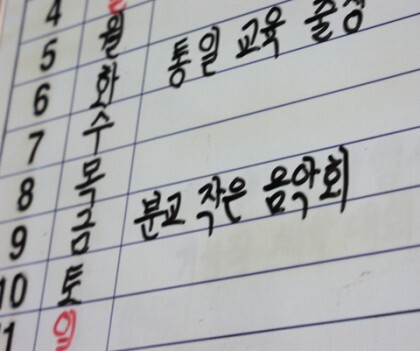 4
5 월
6 화 통일 교육 출장
7 수
8 목
9 금 분교 작은 음악회
10 토
1 일